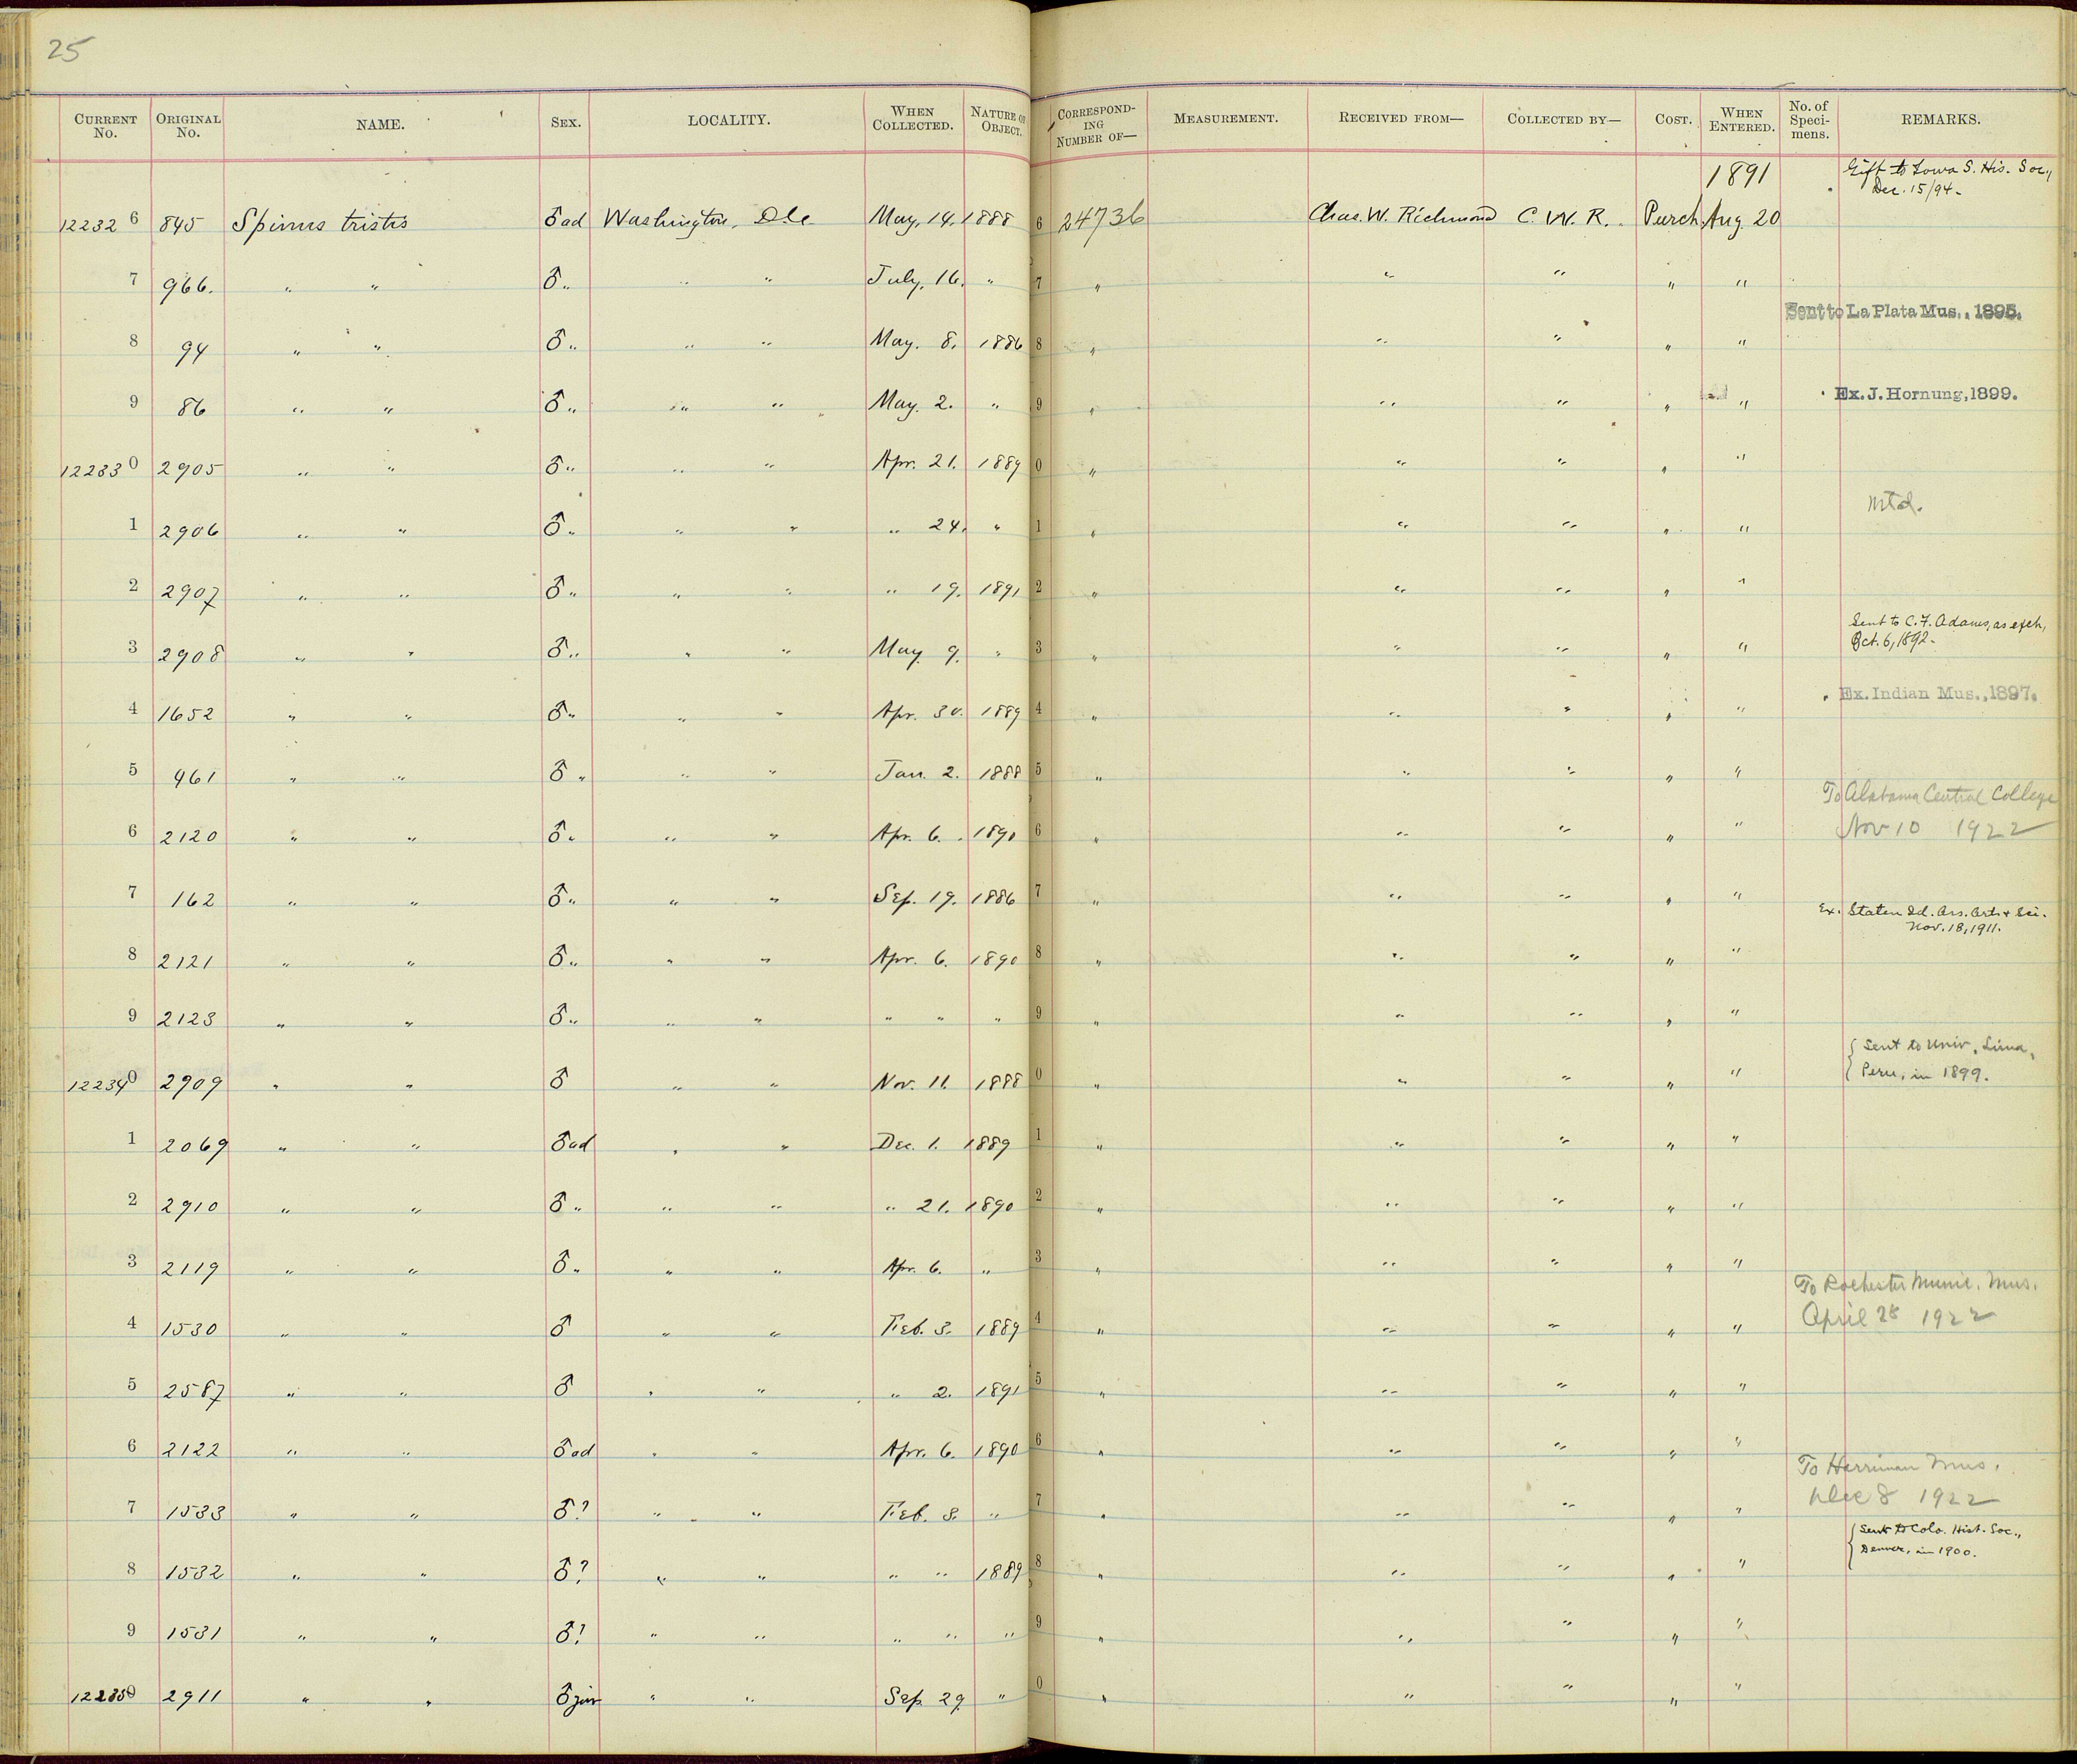 25
CURRENT No. ORIGINAL No. NAME. SEX. LOCALITY. WHEN COLLECTED. NATURE OF OBJECT. CORRESPONDING NUMBER OF— MEASUREMENT. RECEIVED FROM— COLLECTED BY— COST. WHEN ENTERED. No. of Specimens. REMARKS.
1891 Gift to Iowa S. His. Soc., Dec. 15/94.
12232 6 845 Spinus tristis ♂ad Washington, D.C. May. 14. 1888 6 24736 Chas. W. Richmond C. W. R. Purch. Aug. 20
7 966. " " ♂" " " July. 16. " 7 " " " " "
Sent to La Plata Mus., 1895.
8 94 " " ♂" " " May. 8. 1886 8 " " " " "
9 86 " " ♂" " " May. 2. " 9 " " " " " Ex. J. Hornung, 1899.
12233 0 2905 " " ♂" " " Apr. 21. 1889 0 " " " " "
Mtd.
1 2906 " " ♂" " " " 24. " 1 " " " " "
2 2907 " " ♂" " " " 19. 1891 2 " " " " "
Sent to C. F. Adams, as exch, Oct. 6, 1892.
3 2908 " " ♂" " " May 9. " 3 " " " " "
4 1652 " " ♂" " " Apr. 30. 1889 4 " " " " " Ex. Indian Mus., 1897.
5 461 " " ♂" " " Jan. 2. 1888 5 " " " " "
To Alabama Central College
6 2120 " " ♂" " " Apr. 6. 1890 6 " " " " " Nov 10 1922
7 162 " " ♂" " " Sep. 19. 1886 7 " " " " "
Ex. Staten Id. Ass. Arts & Sci.
Nov. 18, 1911.
8 2121 " " ♂" " " Apr. 6. 1890 8 " " " " "
9 2123 " " ♂" " " " " " 9 " " " " "
Sent to Univ. Lima,
12234 0 2909 " " ♂ " " Nov. 11. 1888 0 " " " " " Peru, in 1899.
1 2069 " " ♂ad " " Dec. 1. 1889 1 " " " " "
2 2910 " " ♂" " " " 21. 1890 2 " " " " "
3 2119 " " ♂" " " Apr. 6. " 3 " " " " "
To Rochester Munic. Mus.
4 1530 " " ♂ " " Feb. 3. 1889 4 " " " " " April 28 1922
5 2587 " " ♂ " " " 2. 1891 5 " " " " "
6 2122 " " ♂ad " " Apr. 6. 1890 6 " " " " "
To Harriman Mus.
7 1533 " " ♂? " " Feb. 3. " 7 " " " " " Dec 8 1922
Sent to Colo. Hist. Soc.,
Denver, in 1900.
8 1532 " " ♂? " " " " 1889 8 " " " " "
9 1531 " " ♂? " " " " " 9 " " " " "
12235 0 2911 " " ♂juv " " Sep. 29 " 0 " " " " "